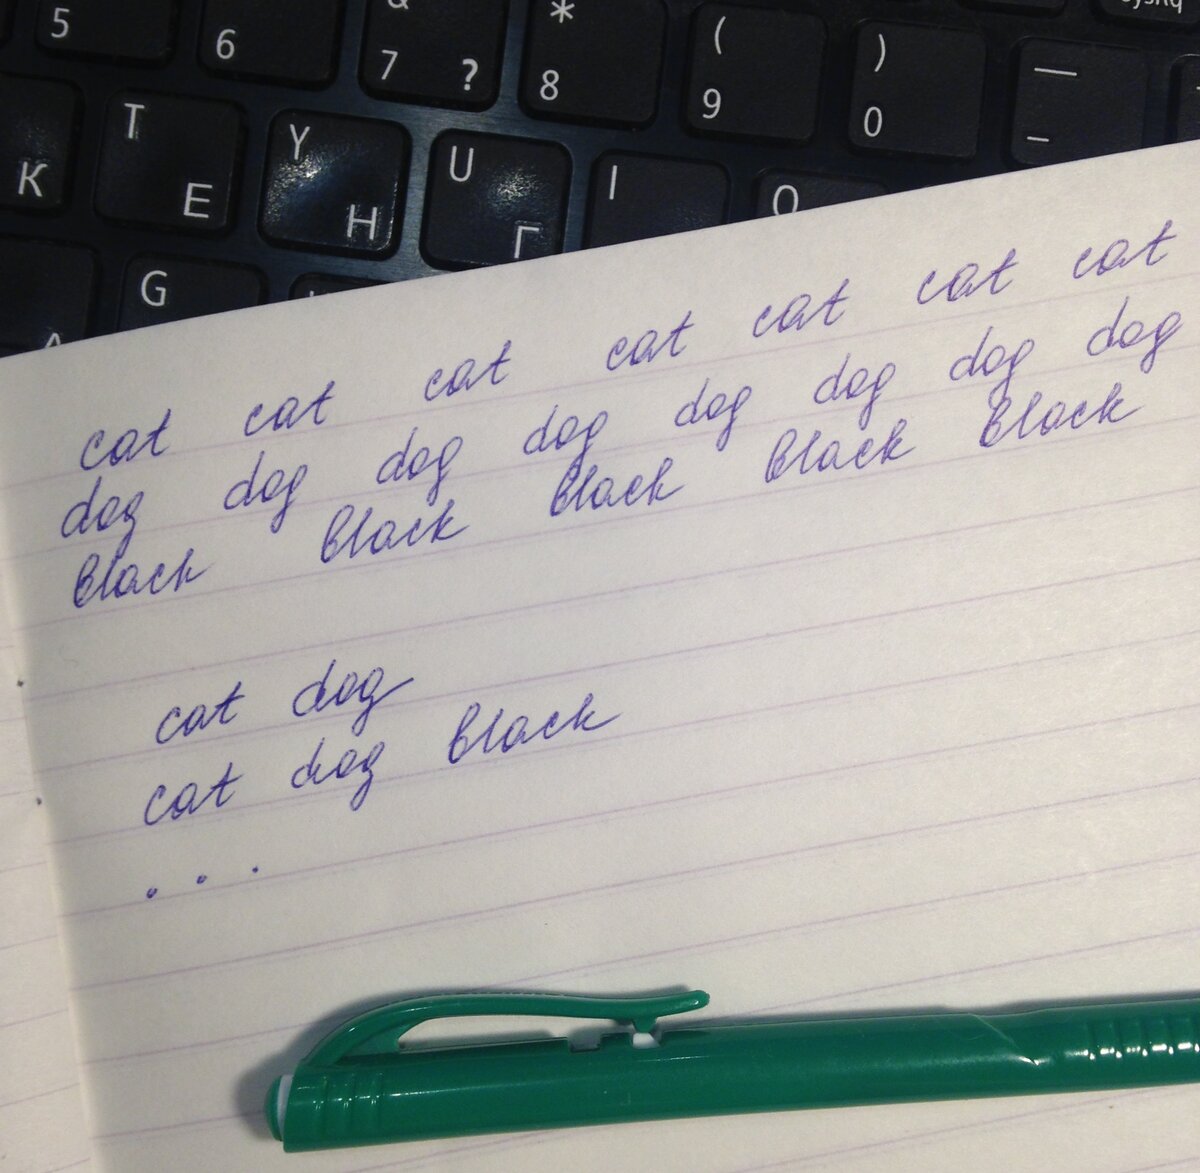 5 6 & 7 ? * 8 ( 9 ) 0 _ -
К T Е Y Н U Г I O
G
cat cat cat cat cat cat cat
dog dog dog dog dog dog dog dog
black black black black black
cat dog
cat dog black
. . .